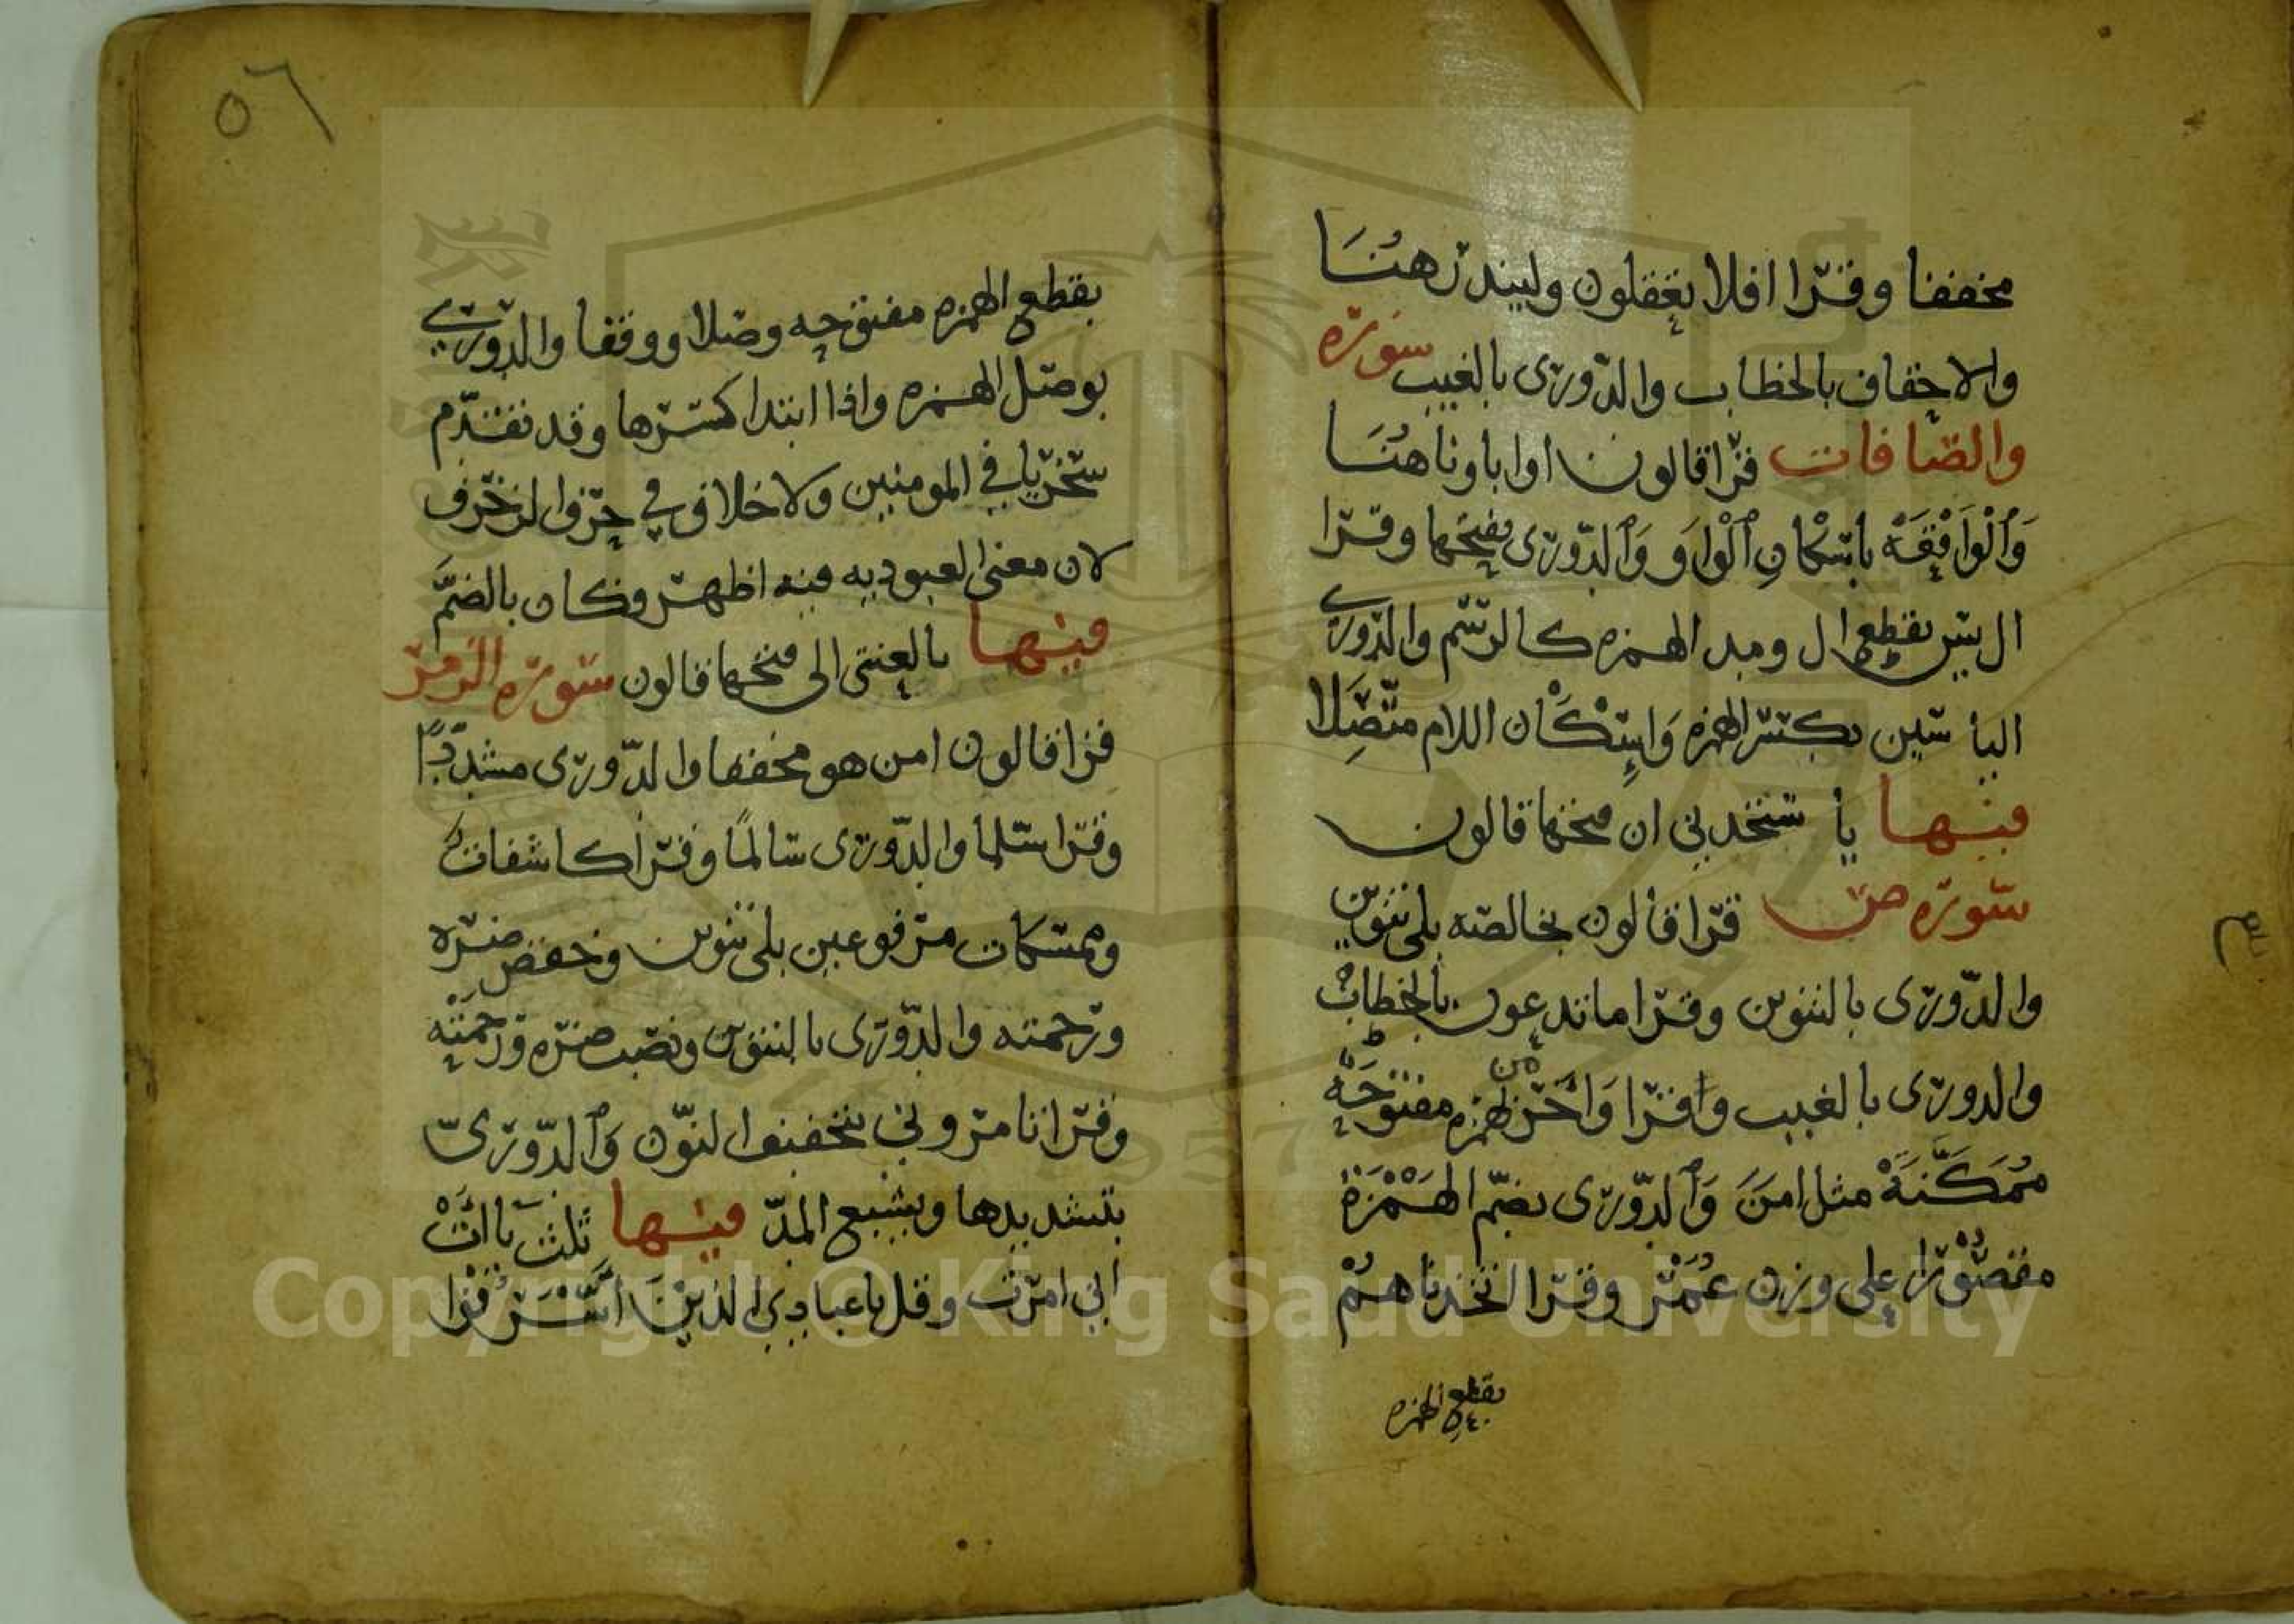 مخففا وقرا افلا تعقلون ولينذر هنا
والاحقاف بالخطاب والدوري بالغيب سورة
والصافات قرا قالون اوا باونا هنا
وَالْوَاقِعَة باسْكانِ الْوَاو وَالدّوري بفتحها وقرا
ال يس بقطع ال ومد الهمزه كالرسم والدوري
الياسين بكسر الهمزه وَاسْكَان اللام متّصِلا
فيها يا ستجدني ان فتحها قالون
سورة ص قرا قالون بخالصه بلى تنوين
والدوري بالتنوين وقرا ما تدعون بالخطاب
والدوري بالغيب وقرا وَاخَر من بهمزه مفتوحَة
مُمَكَّنَة مثل امَنَ وَالدّوري بضم الهَمْزَة
مقصُوْرا على وزن عُمَر وقرا اتخذناهُمْ
بقطع الهمزه
٥٦
بقطع الهمزه مفتوحه وصلا ووقفا والدوري
بوصل الهمزه واذا ابتدا كسرها وقد تقدّم
سخريا في المومنين ولا خلاف في حرف الزخرف
لان معنى العبوديه فيه اظهر وكان بالضمَّ
فيها يا لعنتي الى فتحها قالون سورة الزمر
قرا قالون امن هو مخففا والدّوري مشددًا
وقرا سلما والدّوري سالمًا وقرا كاشفاتُ
وممسكات مرفوعين بلى تنوين وخفض ضره
ورحمته والدّوري بالتنوين ونصب ضره ورَحمَته
وقرا تامروني بتخفيف النّون وَالدّوريّ
بتشديدها ويشبع المدّ فيها ثلث يااتْ
اني امرت وقل يا عبادي الذين اسْرَفُوْا